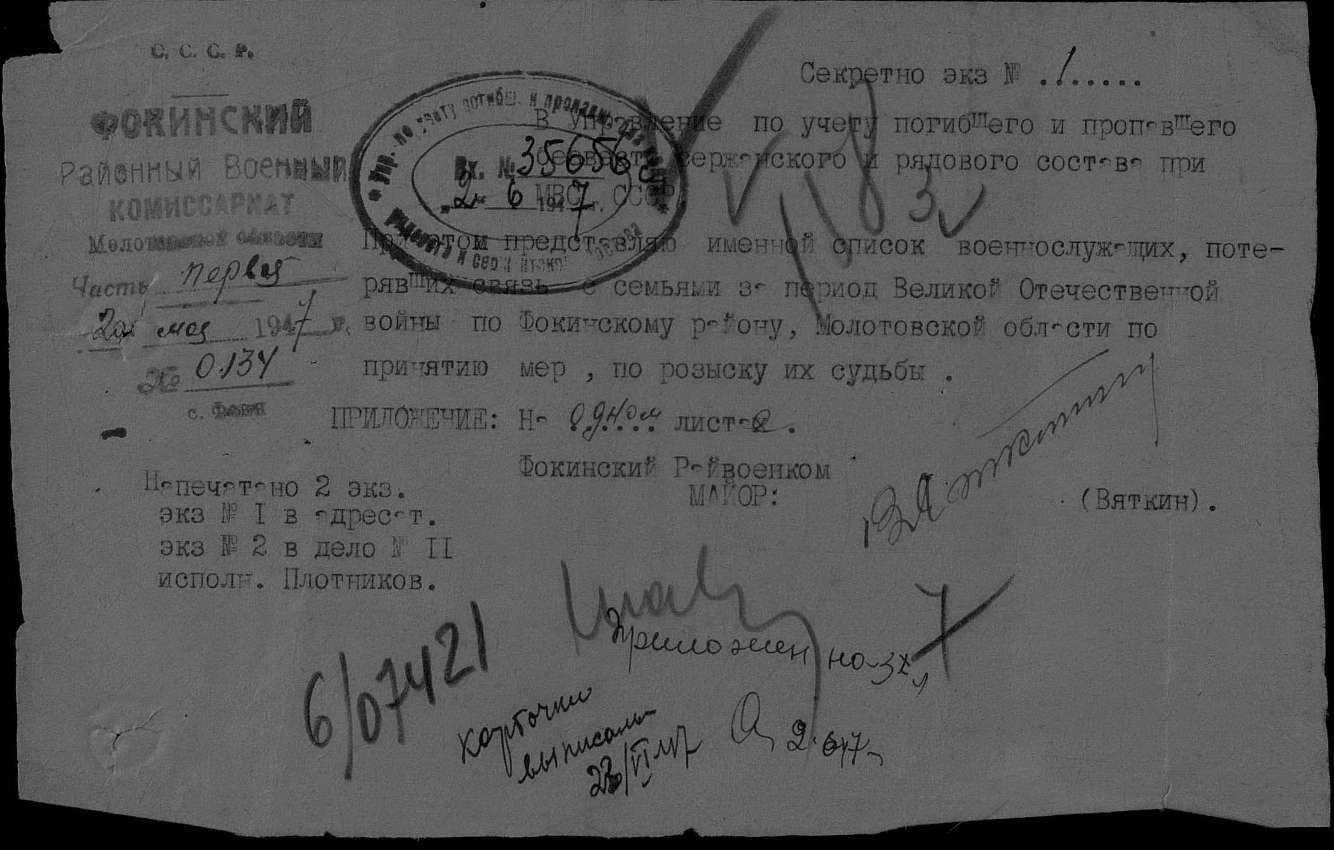 С. С. С. Р.
ФОКИНСКИЙ
Районный Военный
КОМИССАРИАТ
Молотовской области
Часть первая
20 мая 1947 г.
№ 0.134
с. Фоки
Секретно экз № .1.....
В Управление по учету погибшего и пропавшего
сержанского и рядового состава при
МВС СССР.
Вх. № 35656
"2" 6 1947 г.
При этом представляю именной список военнослужащих, поте-
рявших связь с семьями за период Великой Отечественной
войны по Фокинскому району, Молотовской области по
принятию мер , по розыску их судьбы .
ПРИЛОЖЕНИЕ: На одном листе .
Фокинский Райвоенком
МАЙОР:
(Вяткин).
Напечатано 2 экз.
экз № I в адресат.
экз № 2 в дело № II
исполн. Плотников.
Приложен на 3х л
6/07421
карточки
выписаны
2.6.47